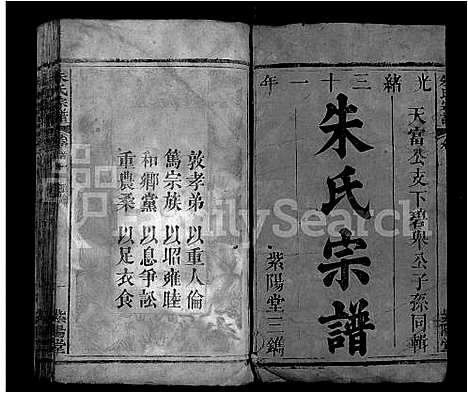 光緒三十一年
天富公支下碧與公子孫同輯
朱氏宗譜
紫陽堂三鐫
敦孝弟以重人倫
篤宗族以昭雍睦
和鄉黨以息爭訟
重農桑以足衣食
朱氏宗譜
紫陽堂
FamilySearch